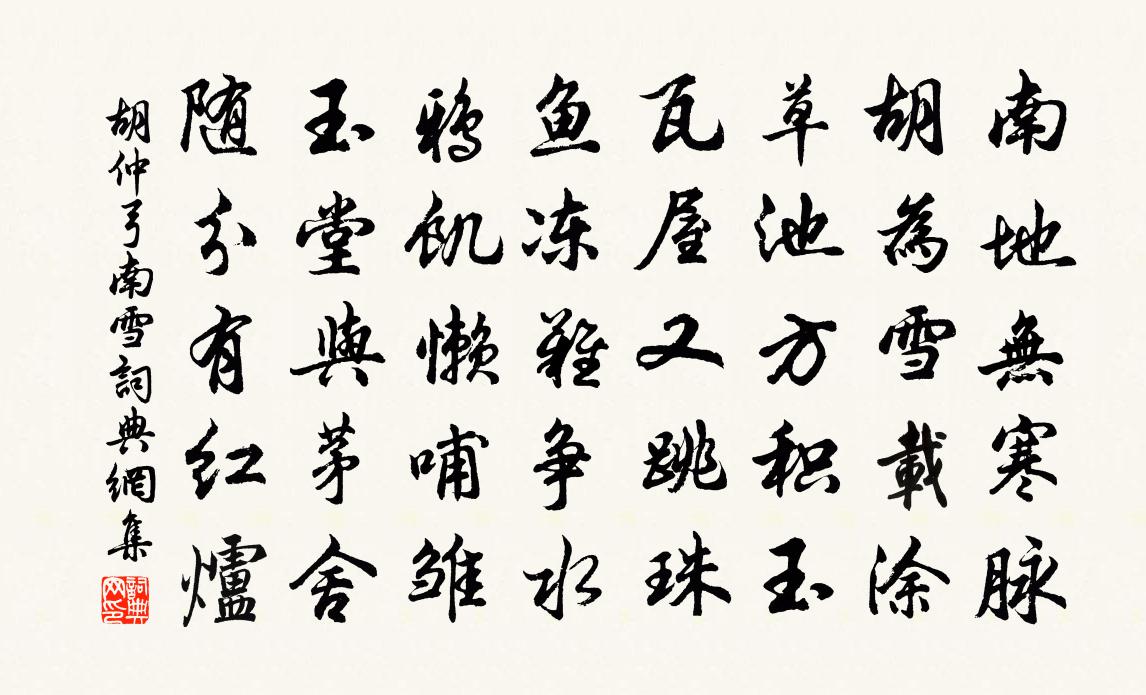 南地無寒脉
胡為雪載涂
草池方积玉
瓦屋又跳珠
魚冻難争水
鸦飢懒哺雏
玉堂與茅舍
随分有红爐
胡仲弓南雪詞典網集
詞典网印